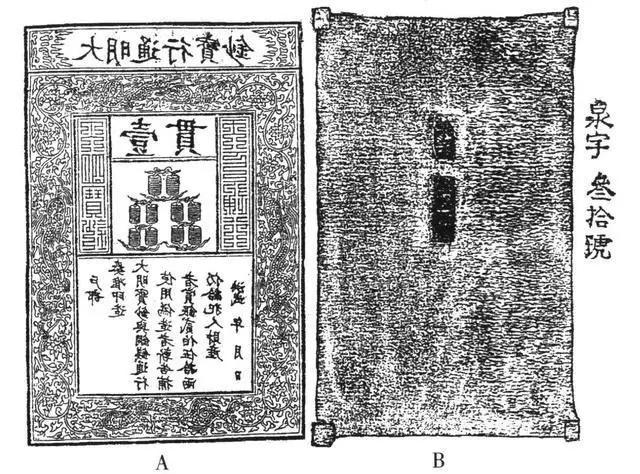 大明通行寶鈔
壹貫
戶部
奏准印造
大明寶鈔與銅錢通行
使用偽造者斬告捕
者賞銀貳伯伍拾兩
仍給犯人財產
洪武 年 月 日
泉字 叄拾號
A
B